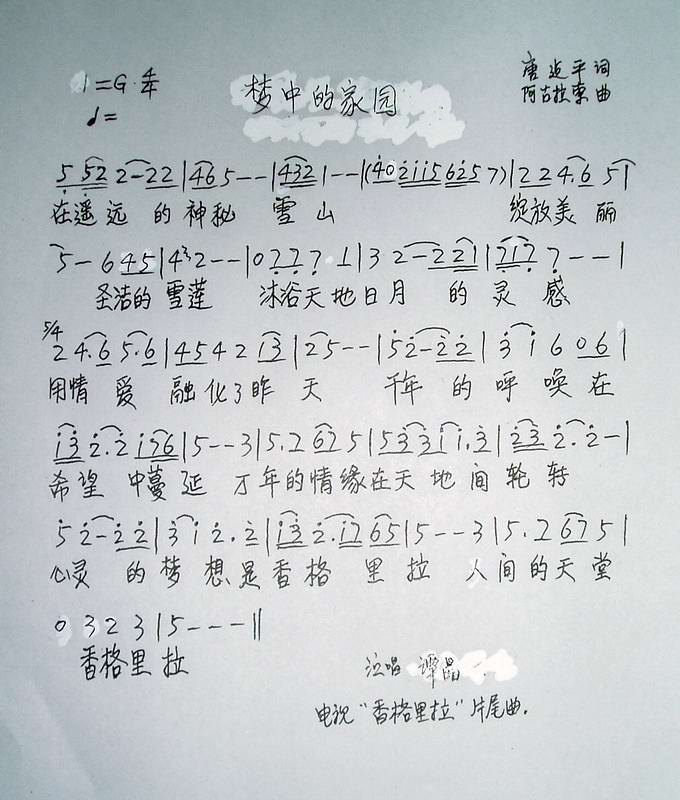 1=G 4/4
♩=
梦中的家园
唐 平 词
阿古拉泰 曲
5 52 2-22|465--|4321--|(4021156257)|224.65|
在遥远的神秘雪山 绽放美丽
5-645|4³2--|07771|32-221|7177--|
圣洁的雪莲 沐浴天地日月的灵感
5/4
24.65.6|454213|25--|52-22|31606|
用情爱融化了昨天 千年的呼唤在
132.2176|5--3|5.2675|53311.3|232.2-|
希望中蔓延 万年的情缘在天地间轮转
52-22|312.2|132.1765|5--3|5.2675|
心灵的梦想是香格里拉 人间的天堂
0323|5---‖
香格里拉
演唱 谭晶
电视“香格里拉”片尾曲.